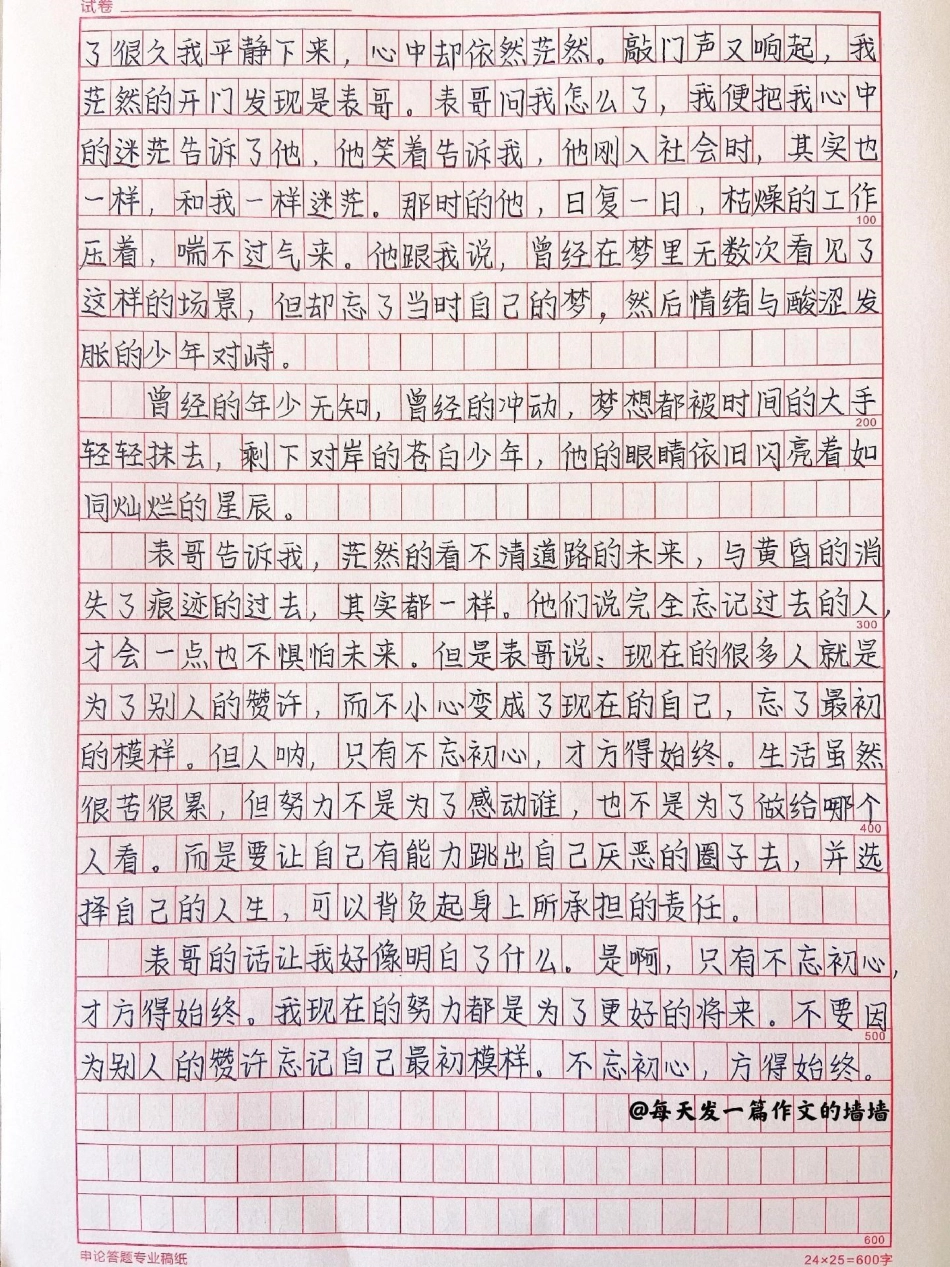 试卷
了很久我平静下来，心中却依然茫然。敲门声又响起，我
茫然的开门发现是表哥。表哥问我怎么了，我便把我心中
的迷茫告诉了他，他笑着告诉我，他刚入社会时，其实也
一样，和我一样迷茫。那时的他，日复一日，枯燥的工作
100
压着，喘不过气来。他跟我说，曾经在梦里无数次看见了
这样的场景，但却忘了当时自己的梦，然后情绪与酸涩发
胀的少年对峙。
曾经的年少无知，曾经的冲动，梦想都被时间的大手
200
轻轻抹去，剩下对岸的苍白少年，他的眼睛依旧闪亮着如
同灿烂的星辰。
表哥告诉我，茫然的看不清道路的未来，与黄昏的消
失了痕迹的过去，其实都一样。他们说完全忘记过去的人，
300
才会一点也不惧怕未来。但是表哥说：现在的很多人就是
为了别人的赞许，而不小心变成了现在的自己，忘了最初
的模样。但人呐，只有不忘初心，才方得始终。生活虽然
很苦很累，但努力不是为了感动谁，也不是为了做给哪个
400
人看。而是要让自己有能力跳出自己厌恶的圈子去，并选
择自己的人生，可以背负起身上所承担的责任。
表哥的话让我好像明白了什么。是啊，只有不忘初心，
才方得始终。我现在的努力都是为了更好的将来。不要因
500
为别人的赞许忘记自己最初模样。不忘初心，方得始终。
@每天发一篇作文的墙墙
600
申论答题专业稿纸 24×25=600字